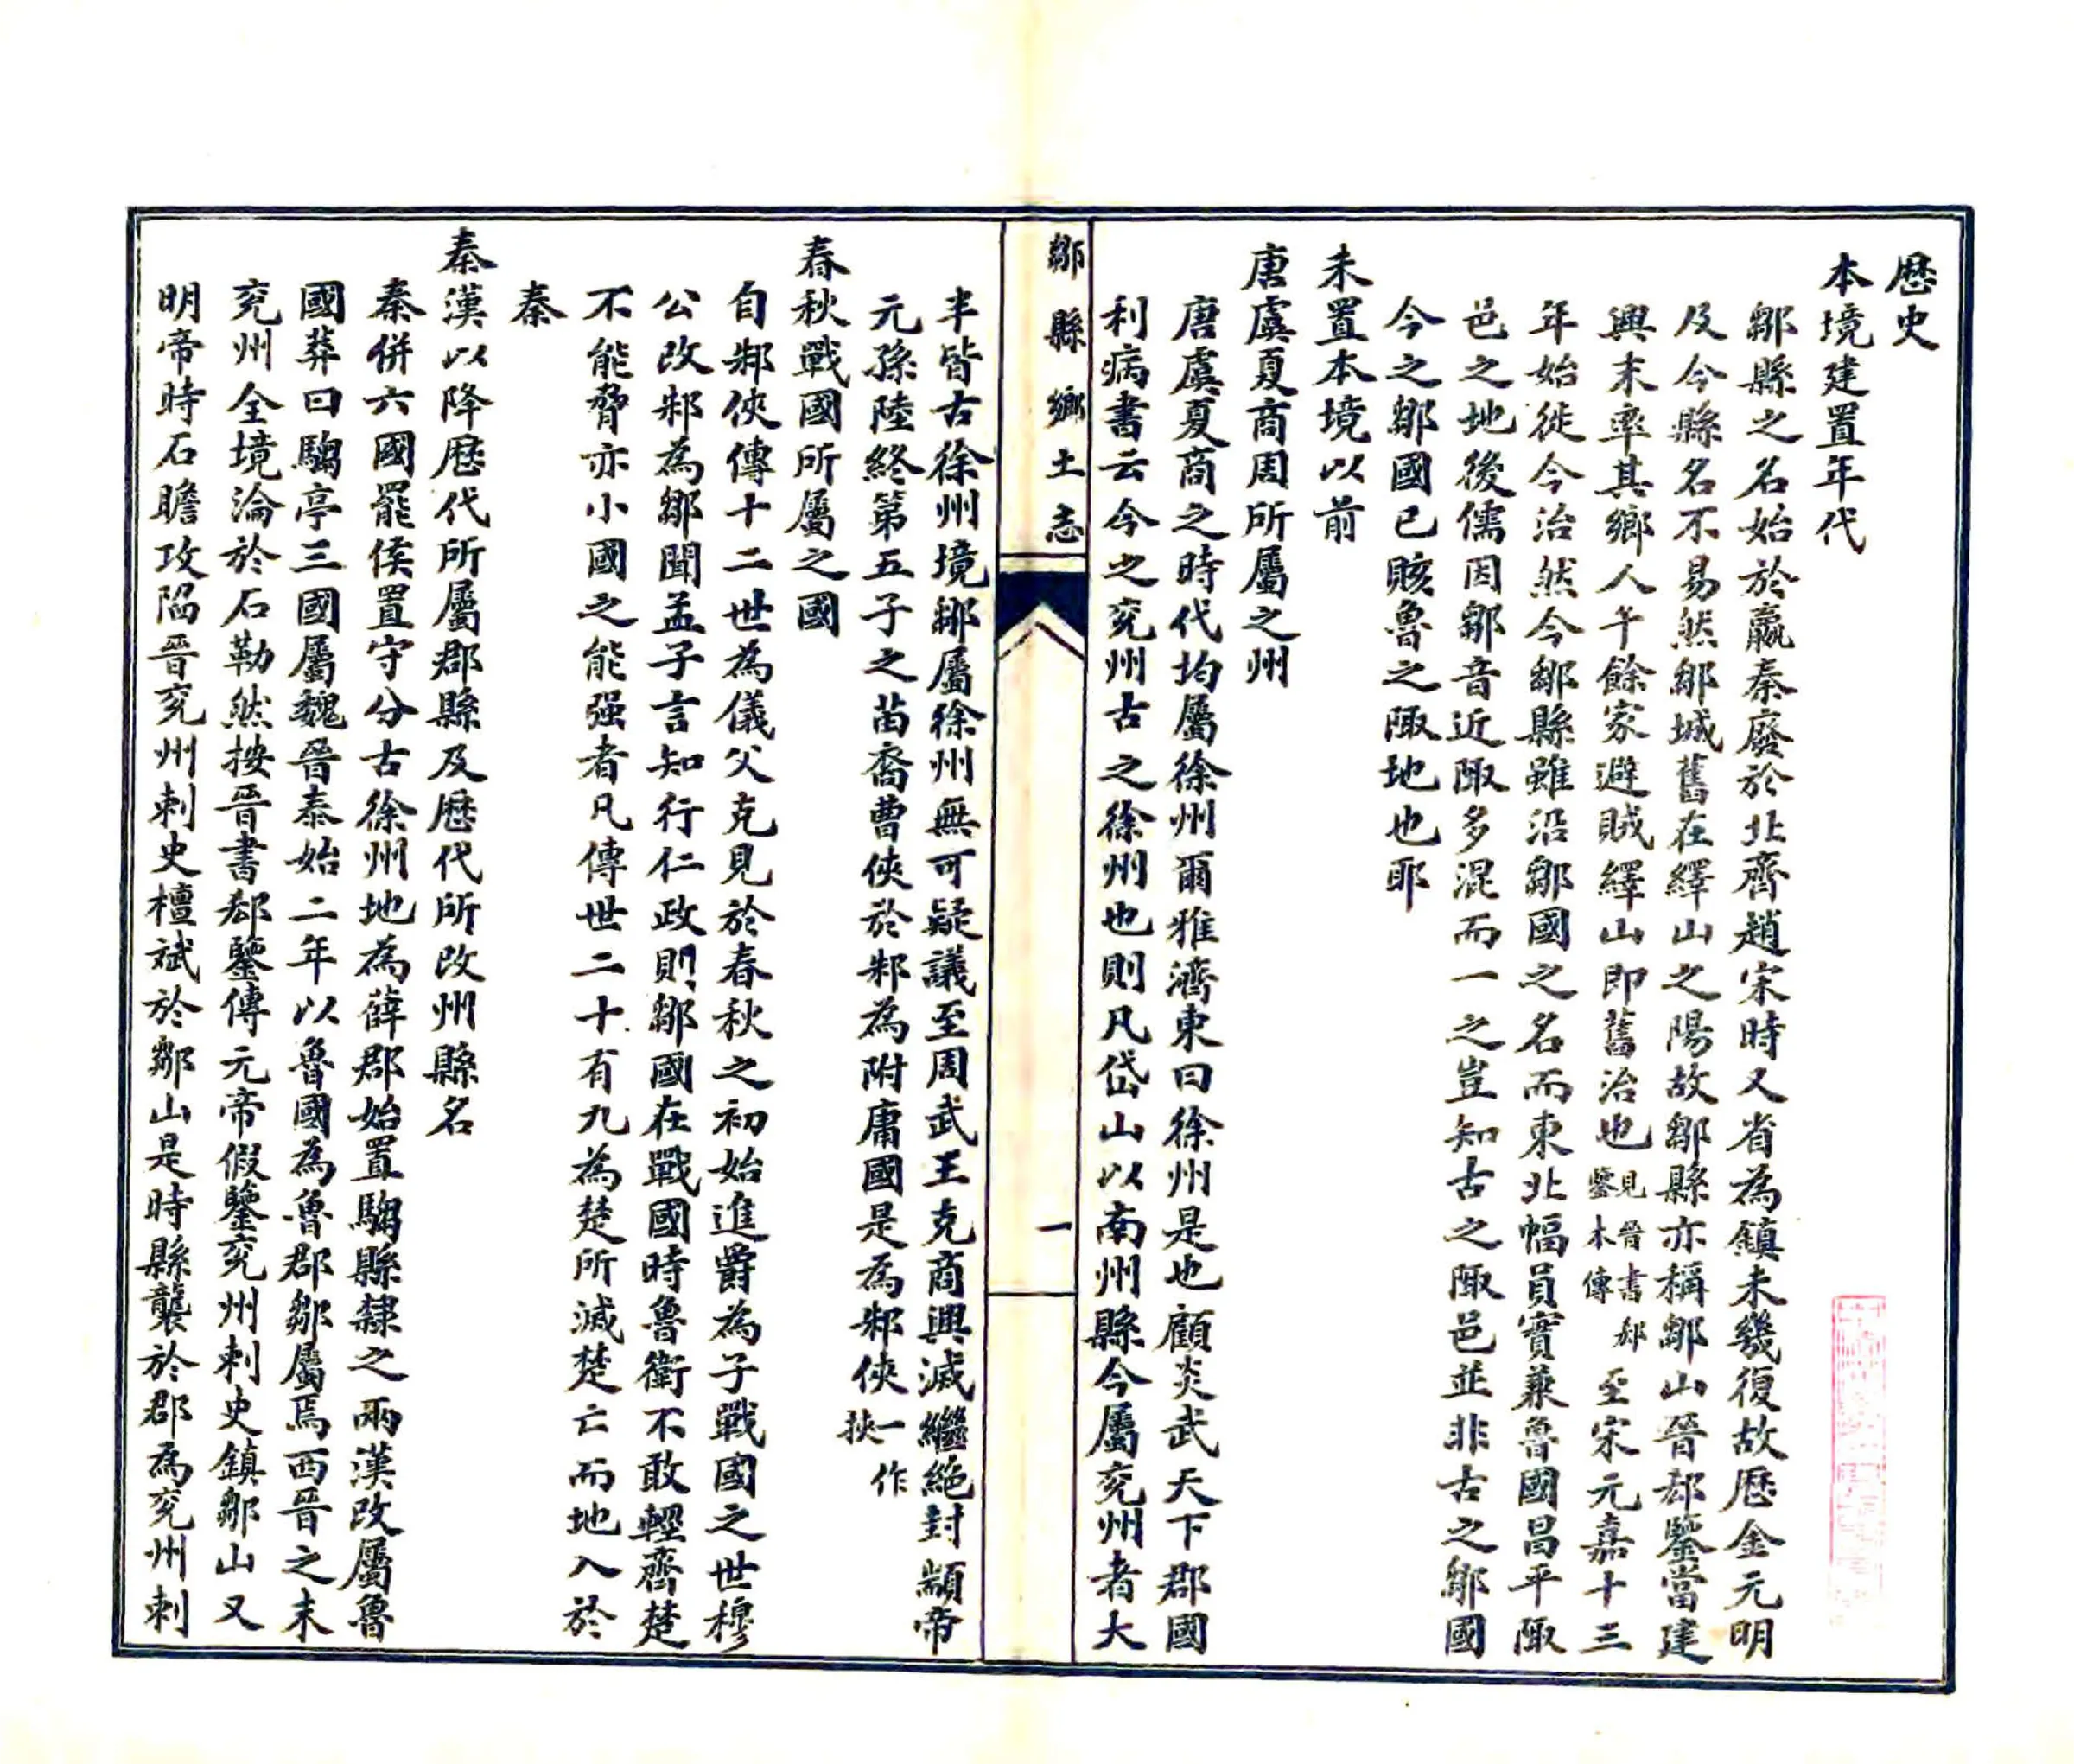 歷史
本境建置年代
鄒縣之名始於嬴秦廢於北齊趙宋時又省為鎮未幾復故歷金元明
及今縣名不易然鄒城舊在繹山之陽故鄒縣亦稱鄒山晉郄鑒當建
興末率其鄉人千餘家避賊繹山即舊治也見晉書郄鑒本傳至宋元嘉十三
年始徙今治然今鄒縣雖沿鄒國之名而東北幅員實兼魯國昌平陬
邑之地後儒因鄒音近陬多混而一之豈知古之陬邑並非古之鄒國
今之鄒國已賅魯之陬地也耶
未置本境以前
唐虞夏商周所屬之州
唐虞夏商之時代均屬徐州爾雅濟東曰徐州是也顧炎武天下郡國
利病書云今之兖州古之徐州也則凡岱山以南州縣今屬兖州者大
鄒縣鄉土志
一
半皆古徐州境鄒屬徐州無可疑議至周武王克商興滅繼絕封顓帝
元孫陸終第五子之苗裔曹俠於邾為附庸國是為邾俠一作挾
春秋戰國所屬之國
自邾俠傳十二世為儀父克見於春秋之初始進爵為子戰國之世穆
公改邾為鄒聞孟子言知行仁政則鄒國在戰國時魯衛不敢輕齊楚
不能脅亦小國之能强者凡傳世二十有九為楚所滅楚亡而地入於
秦
秦漢以降歷代所屬郡縣及歷代所改州縣名
秦併六國罷侯置守分古徐州地為薛郡始置騶縣隸之兩漢改屬魯
國莽曰騶亭三國屬魏晉泰始二年以魯國為魯郡鄒屬焉西晉之末
兖州全境淪於石勒然按晉書郄鑒傳元帝假鑒兖州刺史鎮鄒山又
明帝時石瞻攻陷晉兖州刺史檀斌於鄒山是時縣襲於郡為兖州刺